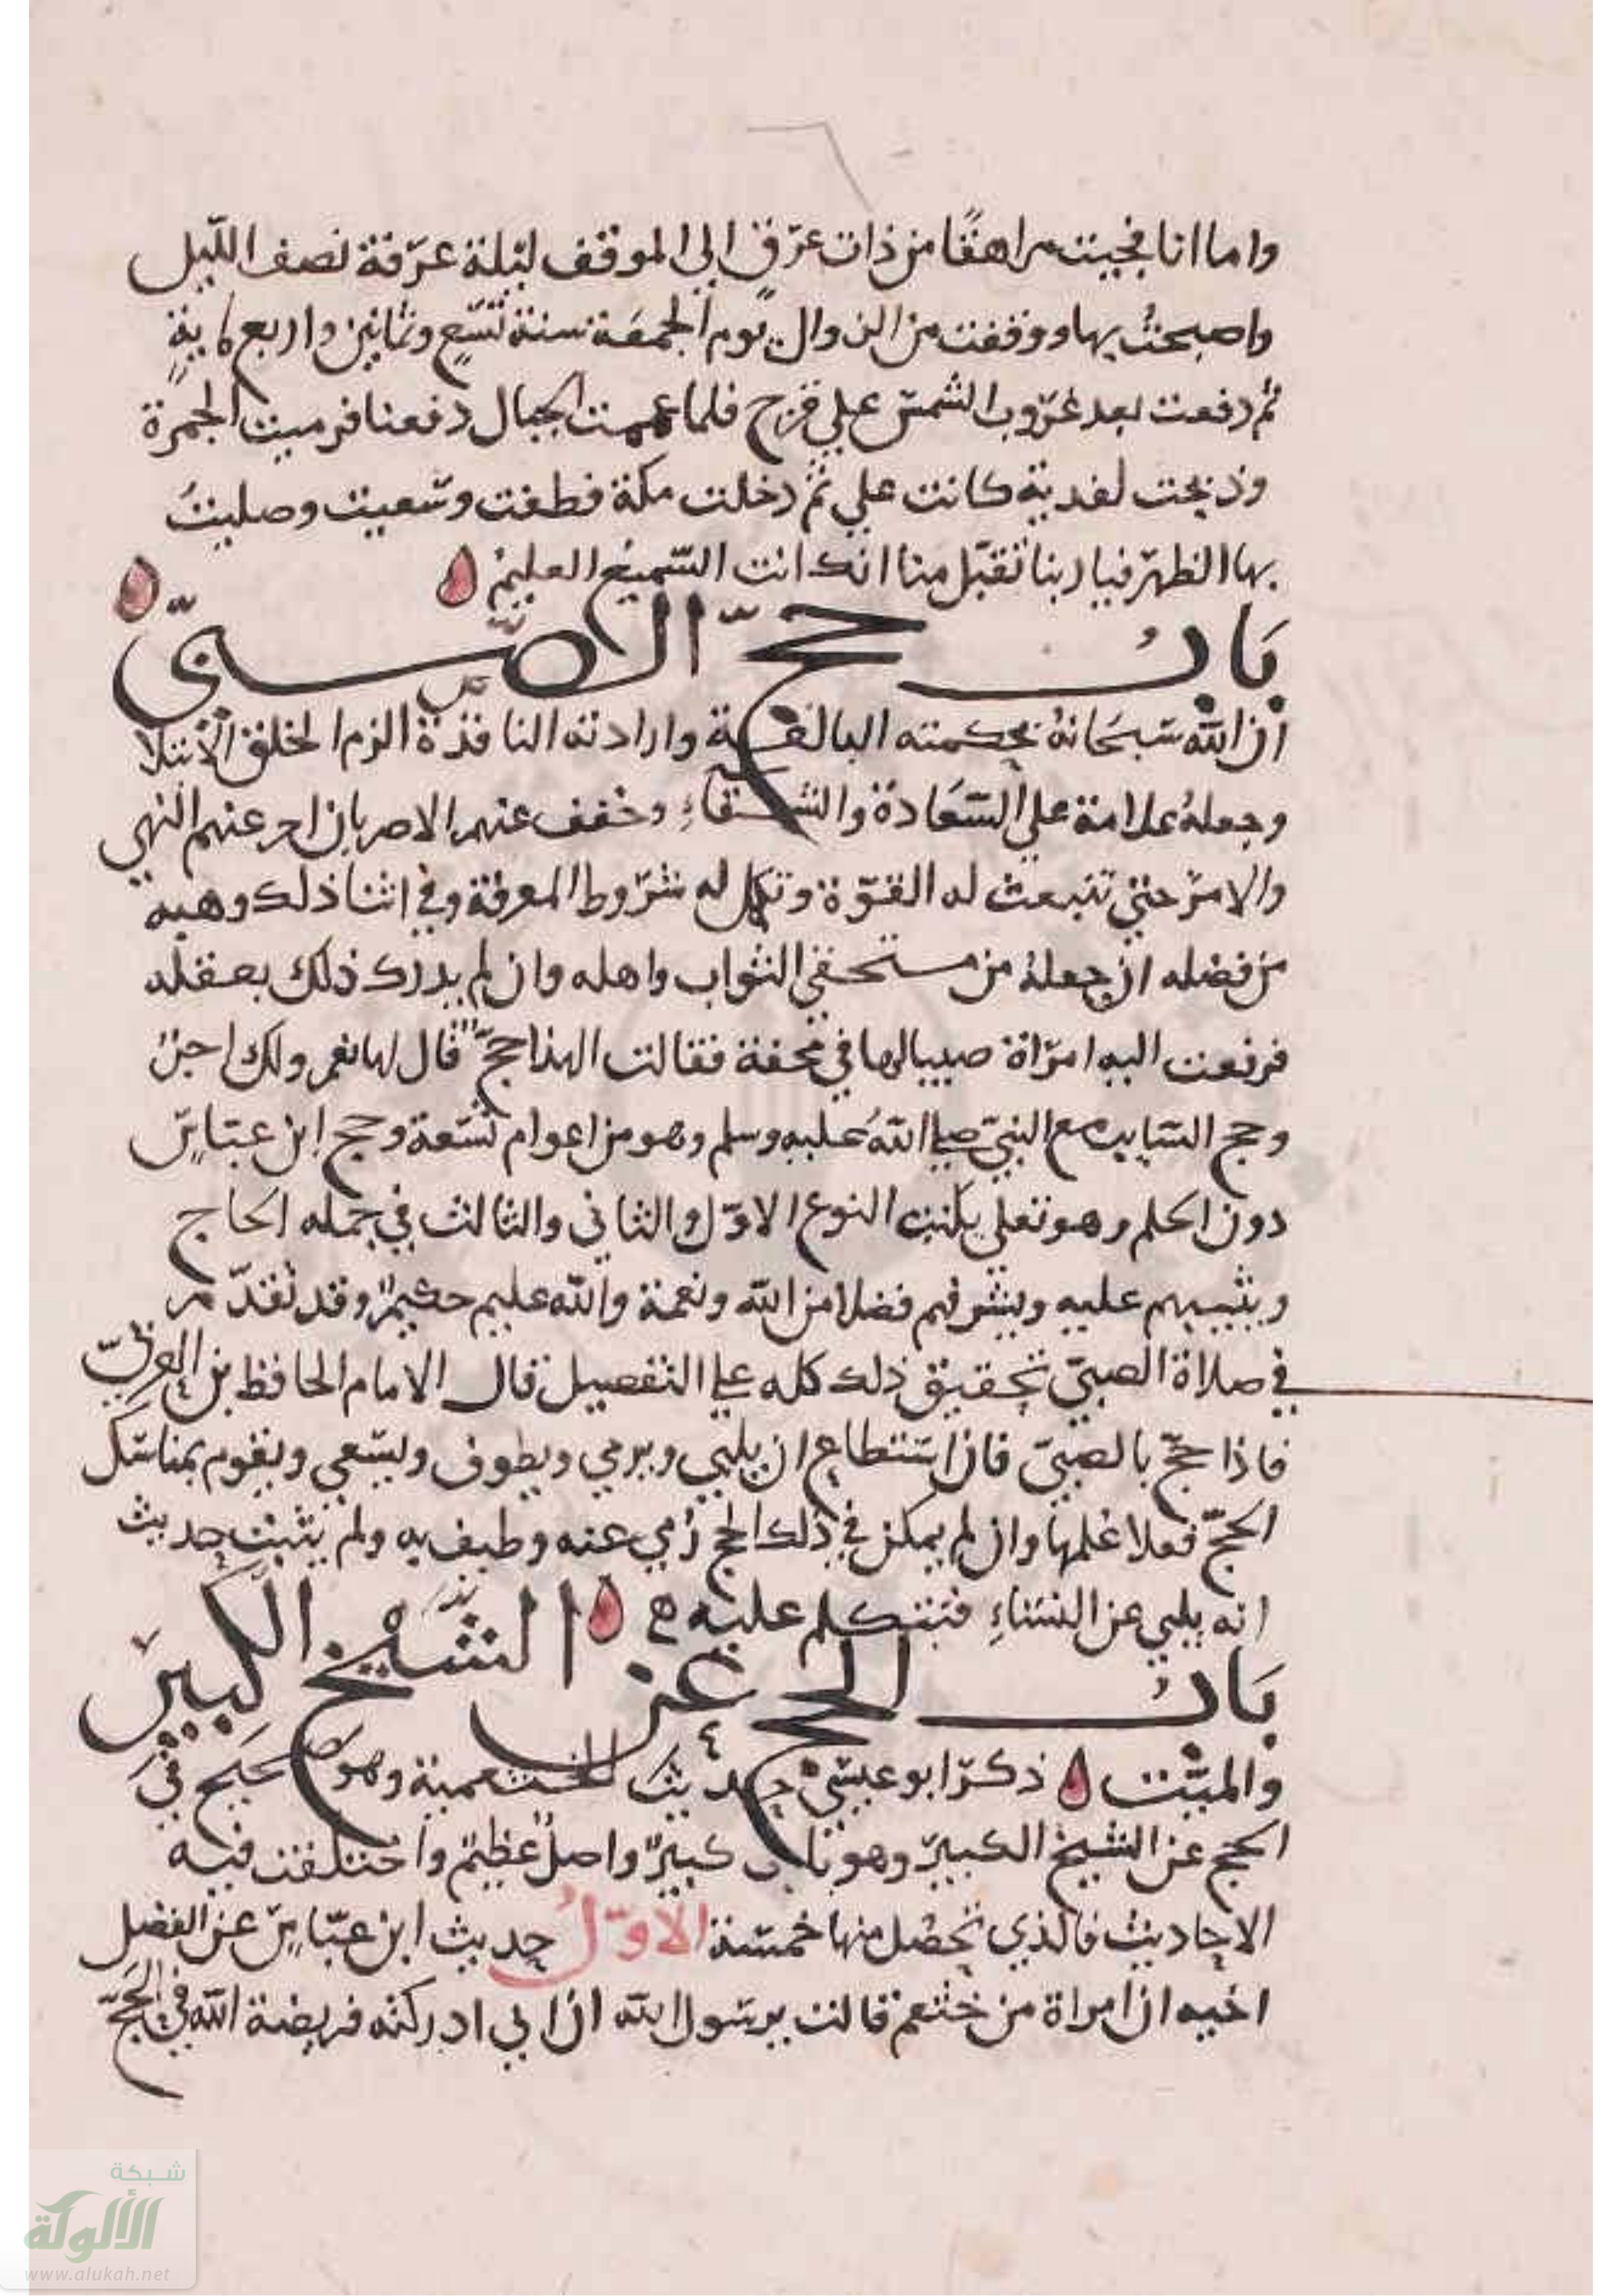 واما انا فجيت مراهقًا من ذات عرق الى الموقف ليلة عرفة نصف الليل
واصبحت بها ووقفت من الزوال يوم الجمعة سنة تسع وثمانين واربع ماية
ثم دفعت بعد غروب الشمس علي قزح فلما عممت الجبال دفعنا فرميت الجمرة
وذبحت لفدية كانت علي ثم دخلت مكة فطفت وسعيت وصليت
بها الظهر فيا ربنا تقبل منا انك انت السميع العليم
باب حج الصبي
ان الله سبحانه بحكمته البالغة وارادته النافذة الزم الخلق الابتلا
وجعله علامة علي السعادة والشقاء وخفف عنهم الاصر بان اخر عنهم النهي
والامر حتي تنبعث له القوة وتكمل له شروط المعرفة وفي اثنا ذلك وهبه
من فضله ان جعله من مستحقي الثواب واهله وان لم يدرك ذلك بعقله
فرفعت اليه امراة صبيا لها في محفة فقالت الهذا حج قال لها نعم ولك اجر
وحج السايب مع النبي صلى الله عليه وسلم وهو من اعوام تسعة وحج ابن عباس
دون الحلم وهو تعلي يكتب النوع الاول والثاني والثالث في جمله الحاج
ويثيبهم عليه ويشرفهم فضلا من الله ونعمة والله عليم حكيم وقد تقدم
في صلاة الصبي تحقيق ذلك كله على التفصيل قال الامام الحافظ بن العربي
فاذا حج بالصبي فان استطاع ان يلبي ويرمي ويطوف ويسعي ويقوم بمناسك
الحج فعلا علمها وان لم يمكن في ذلك الحج رمي عنه وطيف به ولم يثبت حديث
انه يلبي عن النساء فنتكلم عليه
باب الحج عن الشيخ الكبير
والميت ذكر ابو عيسي حديث الخثعمية وهو صحيح في
الحج عن الشيخ الكبير وهو باب كبير واصل عظيم واختلفت فيه
الاحاديث فالذي تحصل منها خمسة الاول حديث ابن عباس عن الفضل
اخيه ان امراة من خثعم قالت يرسول الله ان ابي ادركته فريضة الله في الحج
شبكة
الألوكة
www.alukah.net